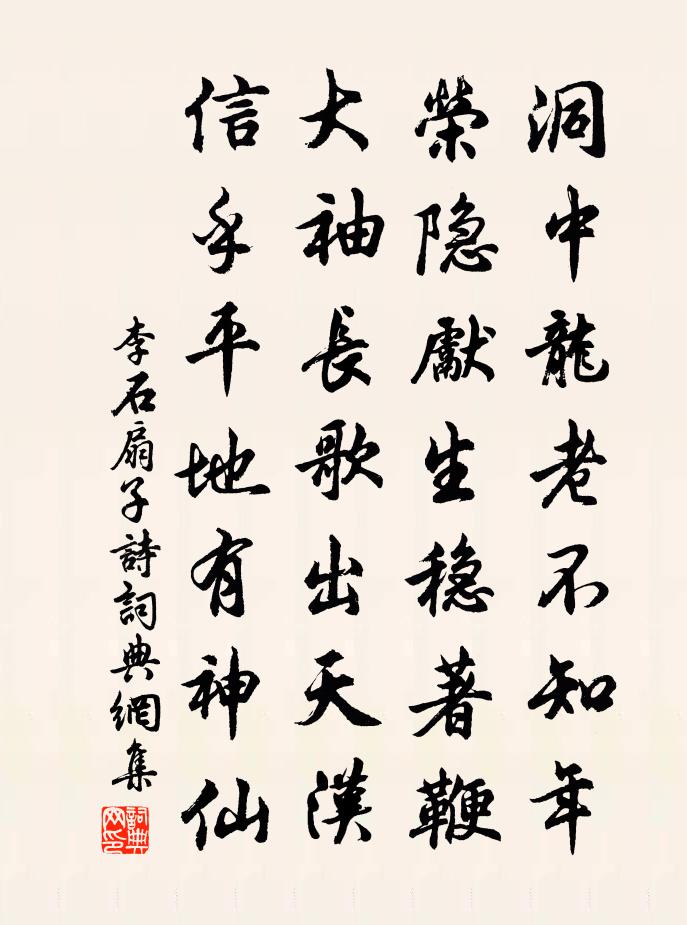 洞中龍老不知年
榮隐獻生穏著鞭
大袖長歌出天漢
信乎平地有神仙
李石扇子詩詞典網集
詞典网印